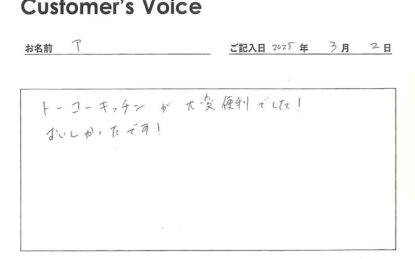 Customer's Voice
お名前 ア ご記入日 2025 年 3 月 2 日
トーコーキッチンが大変便利でした!
おいしかったです!